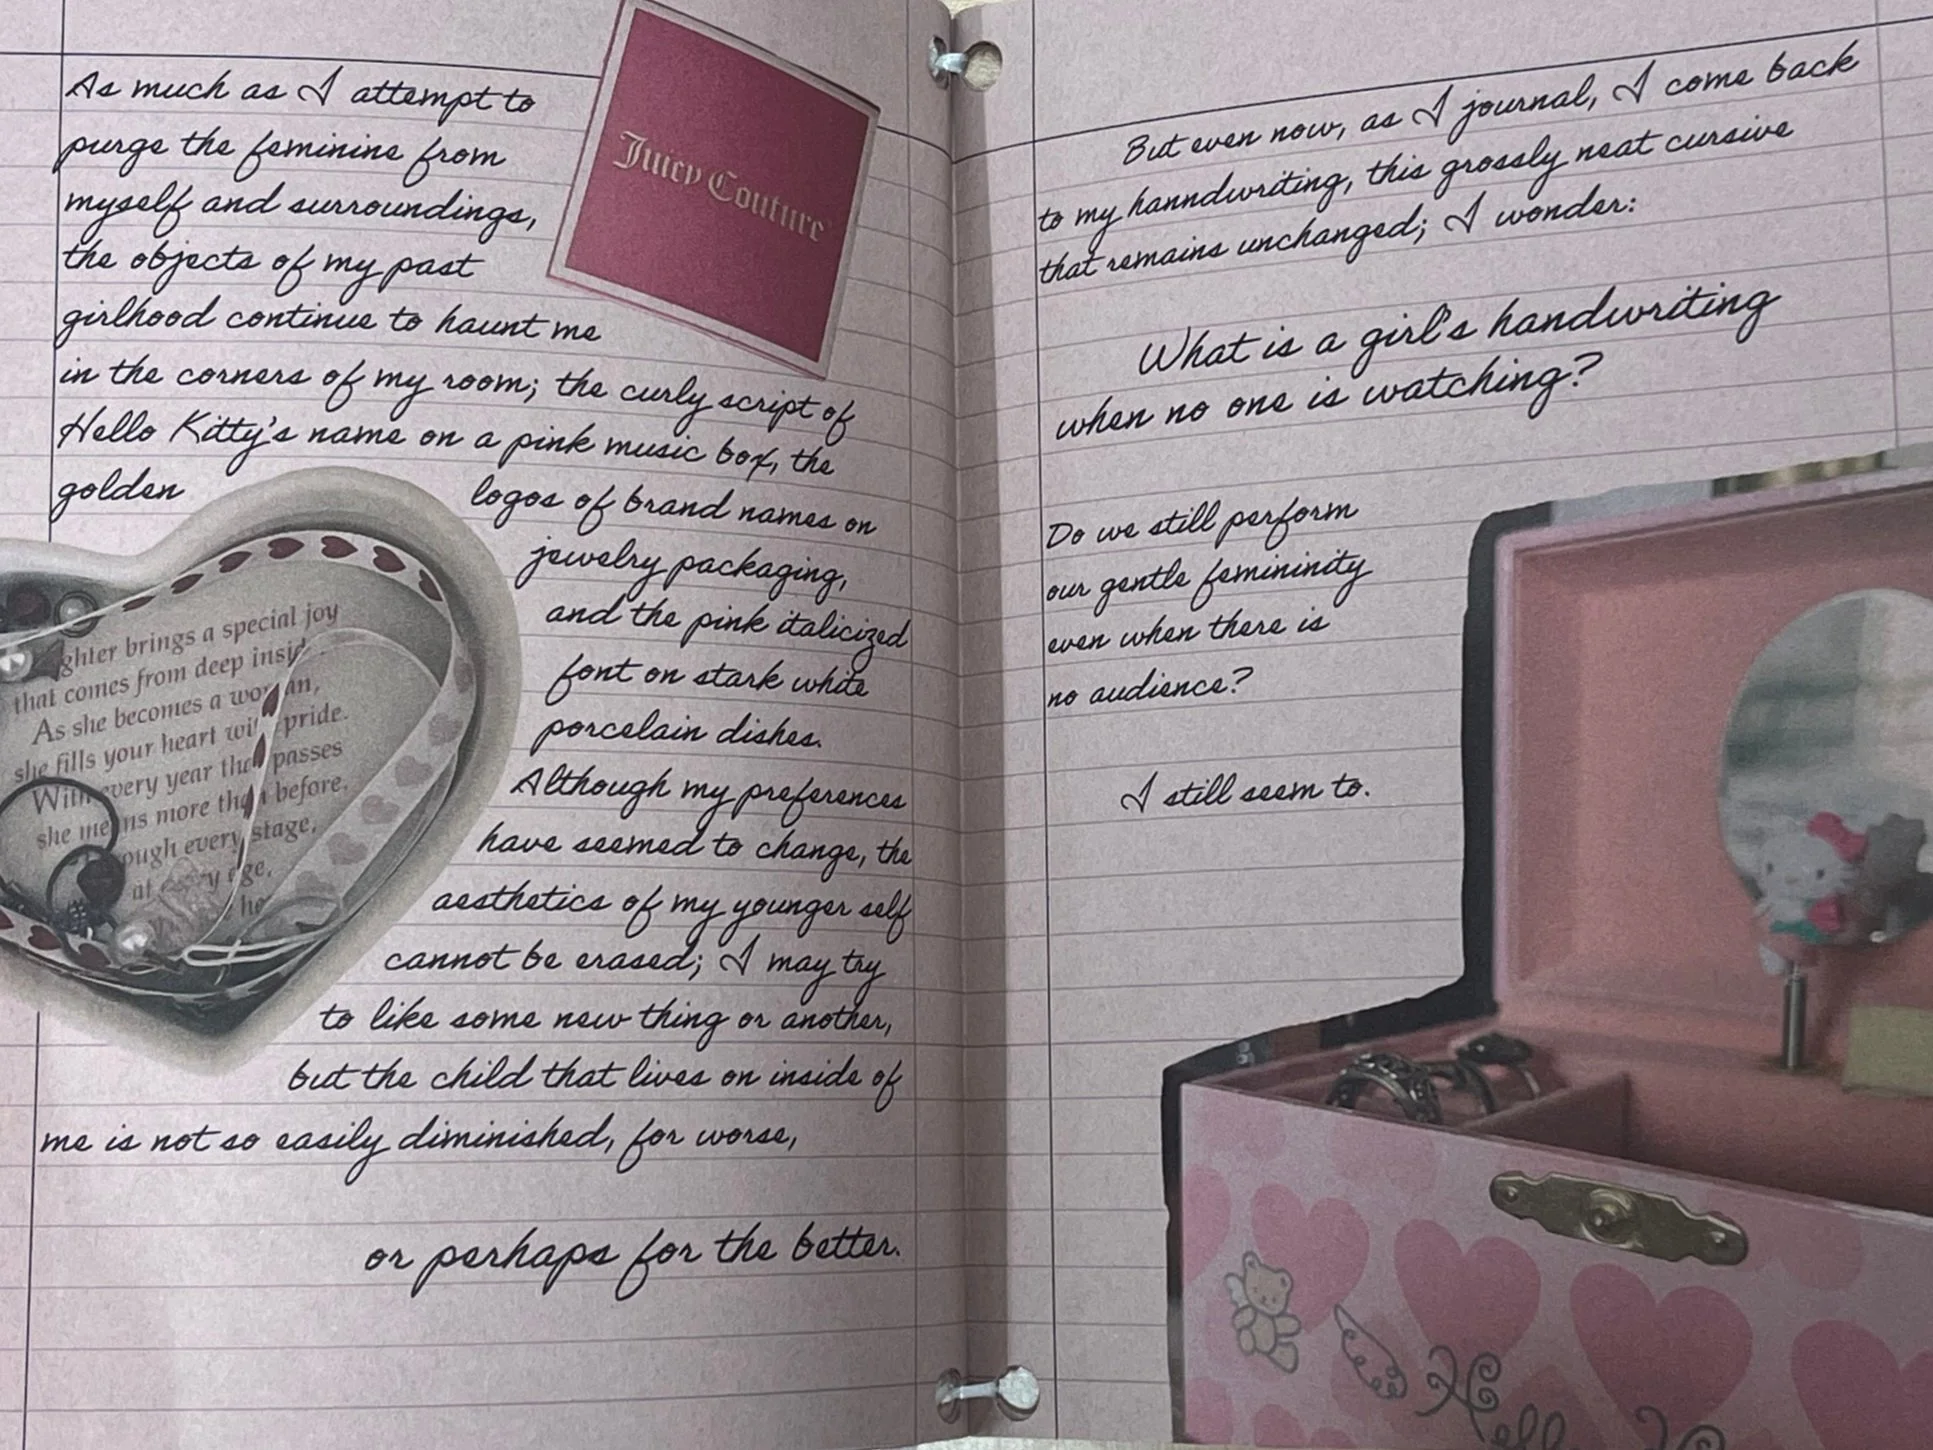 As much as I attempt to
purge the feminine from
myself and surroundings,
the objects of my past
girlhood continue to haunt me
in the corners of my room; the curly script of
Hello Kitty's name on a pink music box, the
golden logos of brand names on
jewelry packaging,
and the pink italicized
font on stark white
porcelain dishes.
Although my preferences
have seemed to change, the
aesthetics of my younger self
cannot be erased; I may try
to like some new thing or another,
but the child that lives on inside of
me is not so easily diminished, for worse,
or perhaps for the better.
Juicy Couture
ghter brings a special joy
that comes from deep insid
As she becomes a woman,
she fills your heart with pride.
With every year that passes
she means more than before,
ough every stage,
at every age,
he
But even now, as I journal, I come back
to my hanndwriting, this grossly neat cursive
that remains unchanged; I wonder:
What is a girl's handwriting
when no one is watching?
Do we still perform
our gentle femininity
even when there is
no audience?
I still seem to.
Hello